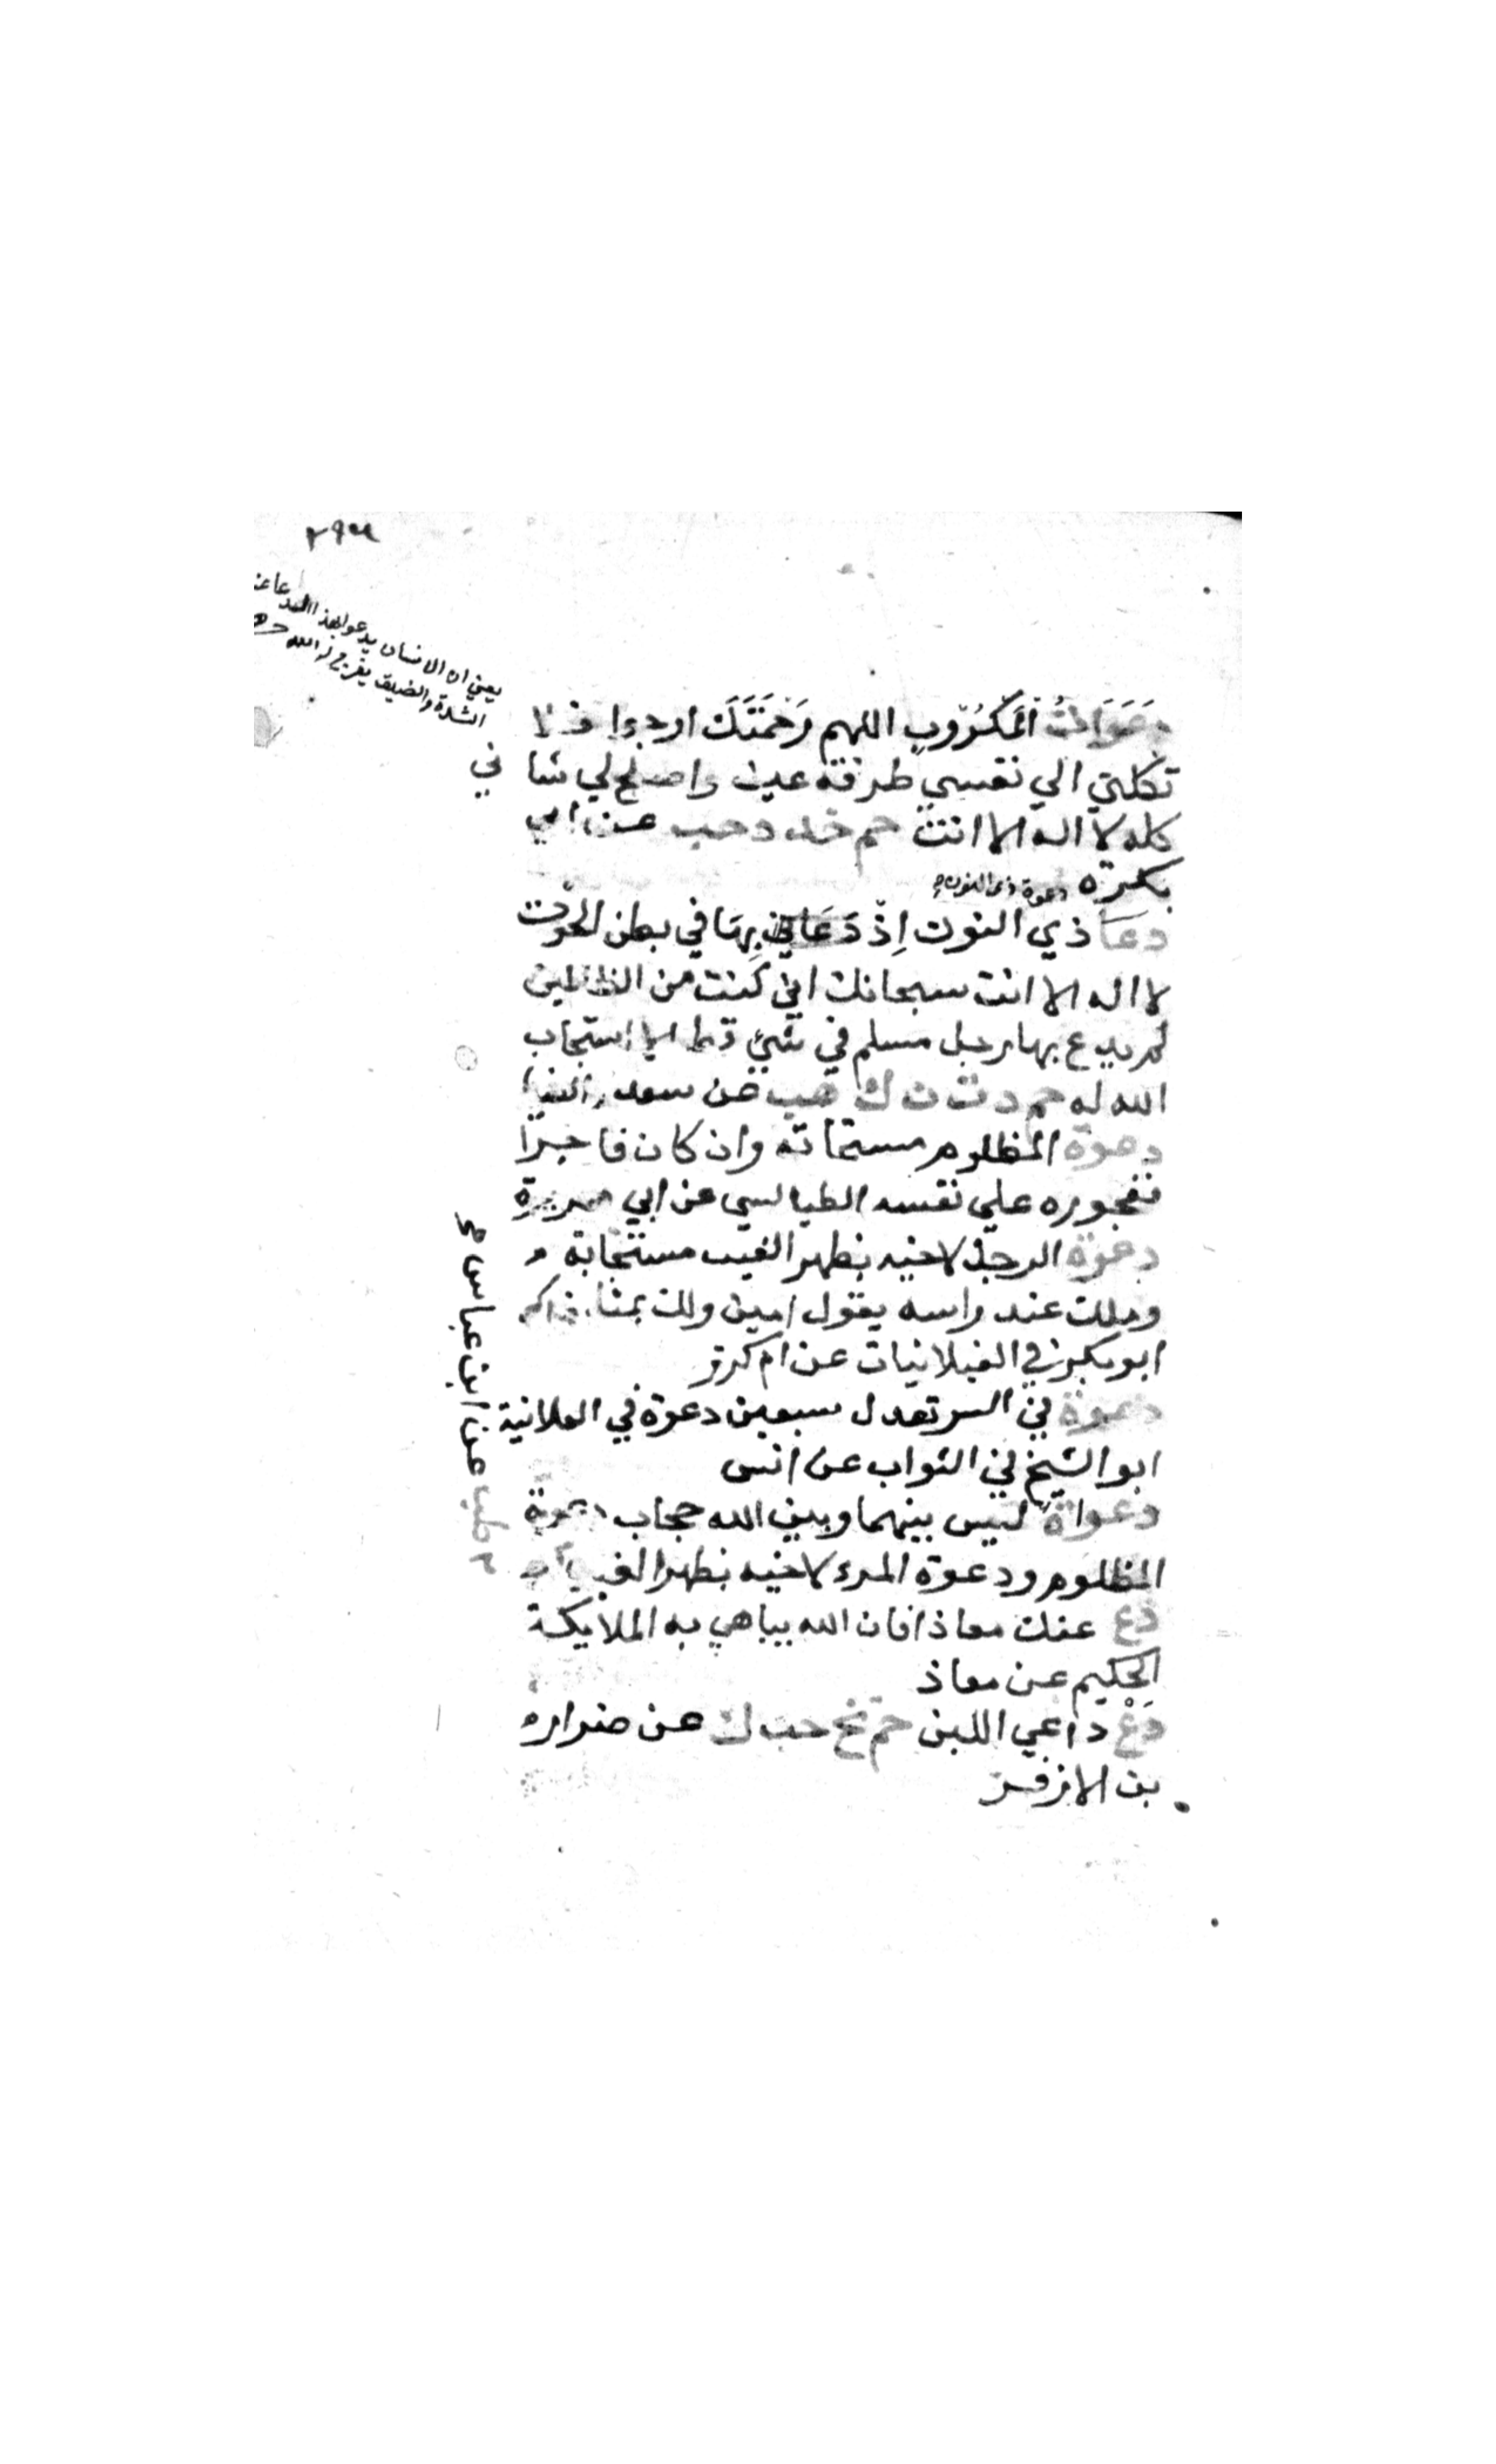 يعني ان الانسان يدعو بهذا الدعا عند
الشدة والضيق يفرج الله
دَعَوَاتُ المَكرُوبِ اللهم رَحْمَتَكَ ارجوا فلا
تكلني الي نفسي طرفة عين واصلح لي شاني
كله لا اله الا انت حم خد د حب عن ابي
بكرة
دعوة ذي النون
دعَا ذي النون اِذْ دَعَا بِهَا في بطن الحوت
لا اله الا انت سبحانك اني كنت من الظالمين
لم يدع بها رجل مسلم في شئ قط الا استجاب
الله له حم ت ن ك هب ض عن سعد
دعوة المظلوم مستجابة وان كان فاجرا
ففجوره علي نفسه الطيالسي عن ابي هريرة
دعوة الرجل لاخيه بظهر الغيب مستجابة
وملك عند راسه يقول امين ولك بمثل ذلك
ابو بكر في الغيلانيات عن ام كرز
دعوة في السر تعدل سبعين دعوة في العلانية
ابو الشيخ في الثواب عن انس
دعواة ليس بينهما وبين الله حجاب دعوة
المظلوم ودعوة المرء لاخيه بظهر الغيب
طب عن ابن عباس
دع عنك معاذا فان الله يباهي به الملايكة
الحكيم عن معاذ
دَعْ داعي اللبن حم تخ حب ك عن ضرار
بن الازور